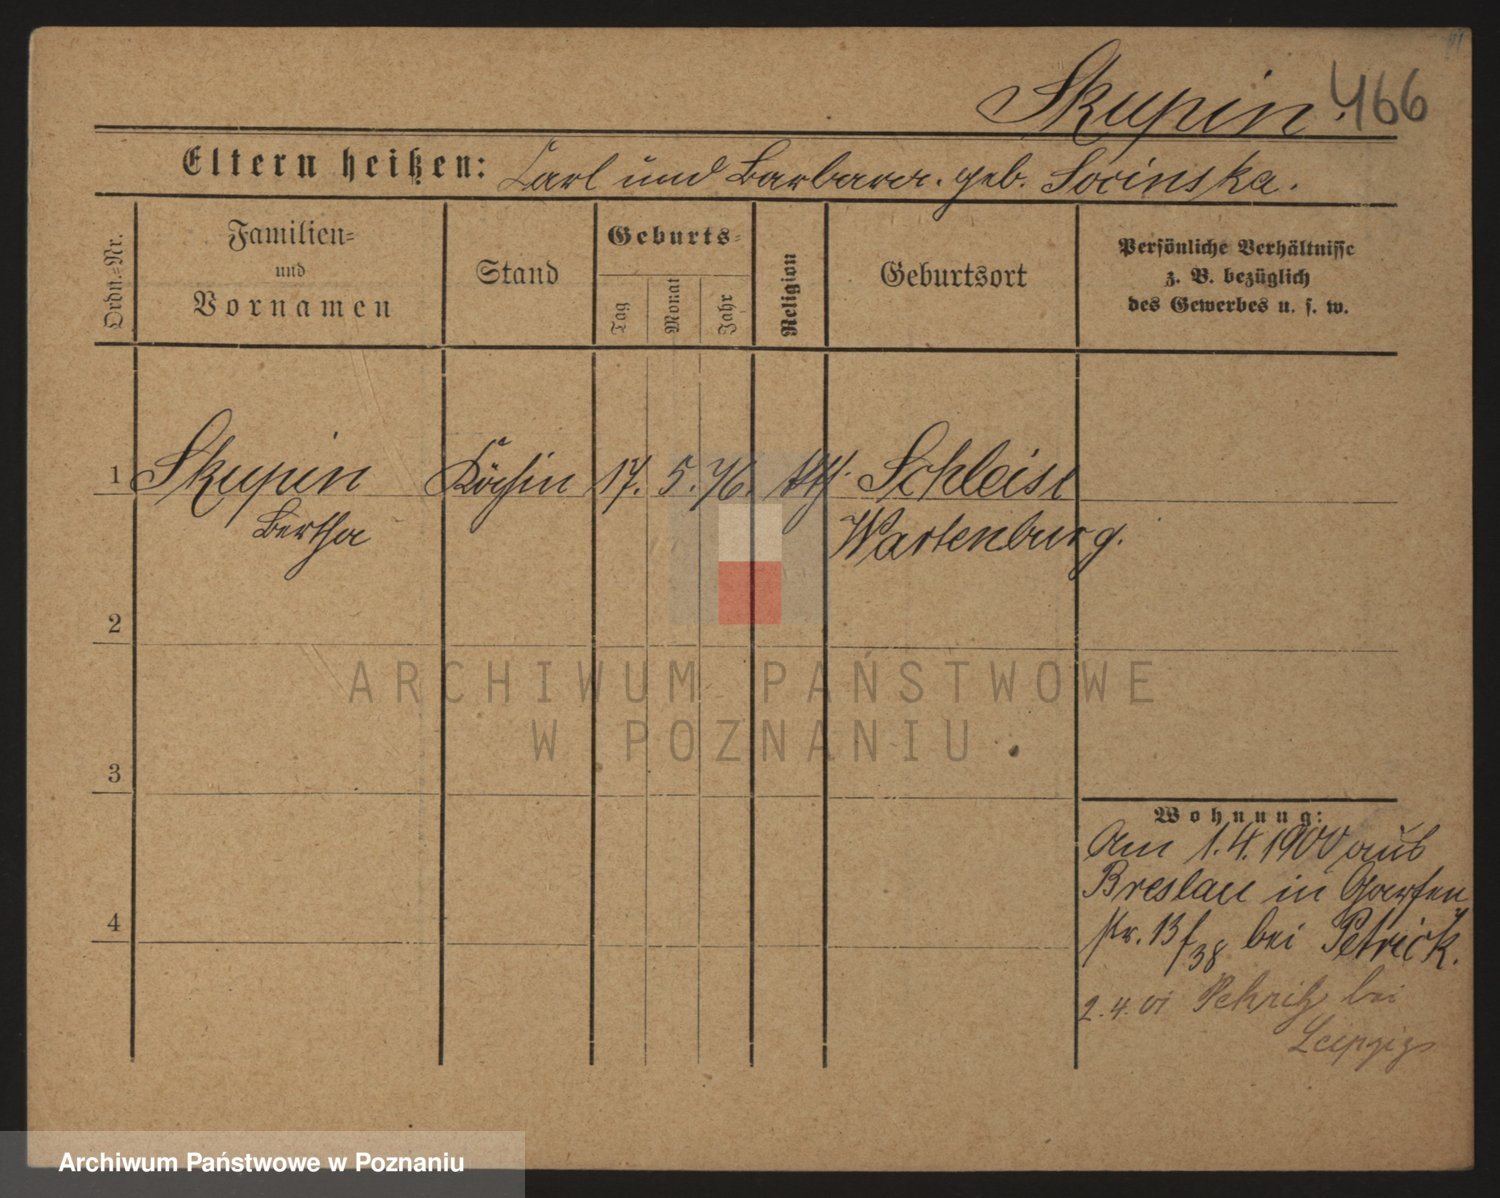 Skupin. 466
Eltern heißen: Carl und Barbara. geb. Socinska.
Ordn.=Nr.
Familien=
und
Vornamen
Stand
Geburts=
Tag
Monat
Jahr
Religion
Geburtsort
Persönliche Verhältnisse
z. B. bezüglich
des Gewerbes u. s. w.
1 Skupin Köchin 17. 5. 76. kth. Schleise
Bertha Wartenburg.
2
ARCHIWUM PAŃSTWOWE
W POZNANIU
3
Wohnung:
Am 1.4.1900 aus
Breslau in Garten
4 str. 13 f/38 bei Petrick.
2.4.01 bei
Leipzig
Archiwum Państwowe w Poznaniu